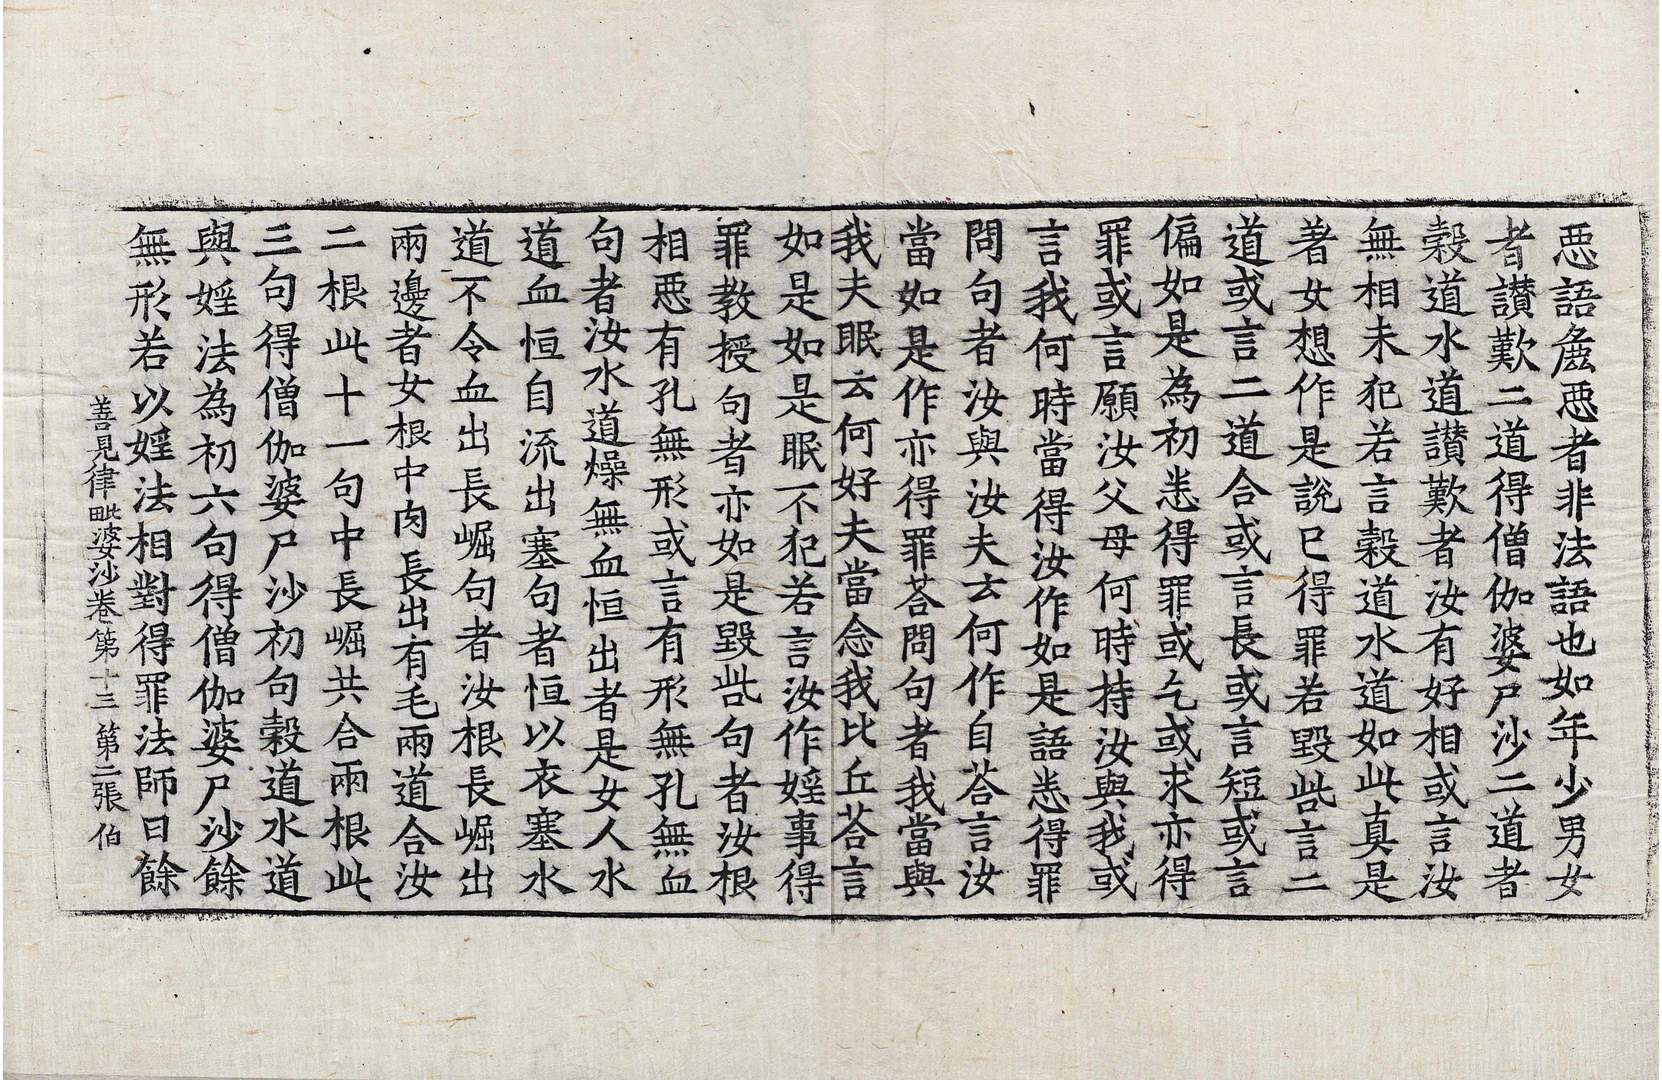 惡語麁惡者非法語也如年少男女
者讃歎二道得僧伽婆尸沙二道者
糓道水道讃歎者汝有好相或言汝
無相未犯若言糓道水道如此真是
著女想作是說已得罪若毀呰言二
道或言二道合或言長或言短或言
偏如是為初悉得罪或乞或求亦得
罪或言願汝父母何時持汝與我或
言我何時當得汝作如是語悉得罪
問句者汝與汝夫云何作自荅言汝
當如是作亦得罪荅問句者我當與
我夫眠云何好夫當念我比丘荅言
如是如是眠不犯若言汝作婬事得
罪教授句者亦如是毀呰句者汝根
相惡有孔無形或言有形無孔無血
句者汝水道燥無血恒出者是女人水
道血恒自流出塞句者恒以衣塞水
道不令血出長崛句者汝根長崛出
兩邊者女根中肉長出有毛兩道合汝
二根此十一句中長崛共合兩根此
三句得僧伽婆尸沙初句糓道水道
與婬法為初六句得僧伽婆尸沙餘
無形若以婬法相對得罪法師曰餘
善見律毗婆沙卷第十三 第二張 伯